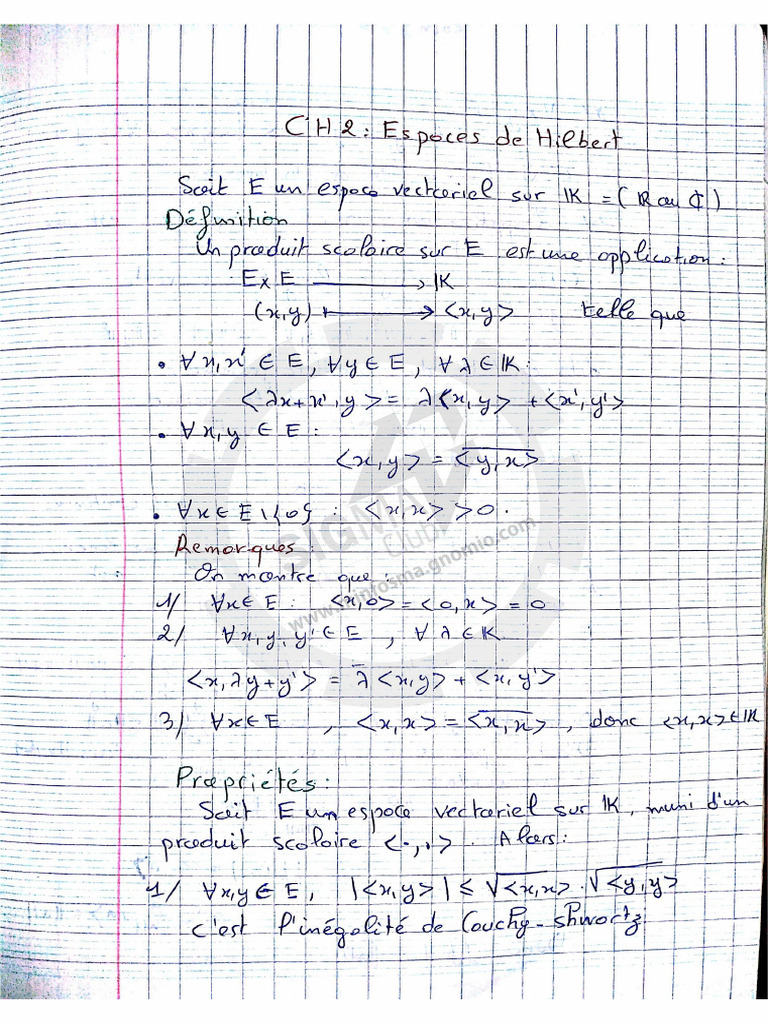 CH2: Espaces de Hilbert
Soit E un espace vectoriel sur IK = (IR ou ℂ)
Définition
Un produit scalaire sur E est une application:
E x E ⟶ IK
(x,y) ⟼ <x,y> telle que
• ∀ x,x' ∈ E, ∀y ∈ E, ∀ λ ∈ IK:
<λx+x',y> = λ<x,y> + <x',y'>
• ∀ x,y ∈ E:
<x,y> = \overline{<y,x>}
• ∀x ∈ E \ {0} : <x,x> > 0.
Remarques:
On montre que:
1/ ∀x∈E: <x,0> = <0,x> = 0
2/ ∀x,y,y' ∈ E, ∀ λ ∈ IK
<x,λy+y'> = \overline{λ} <x,y> + <x,y'>
3/ ∀x∈E, <x,x> = \overline{<x,x>}, donc <x,x> ∈ IR
Propriétés:
Soit E un espace vectoriel sur IK, muni d'un
produit scalaire <.,.>. Alors:
1/ ∀x,y ∈ E, |<x,y>| ≤ √<x,x> . √<y,y>
c'est l'inégalité de Cauchy-shwartz
SIGMA
Club
www.infosma.gnomio.com